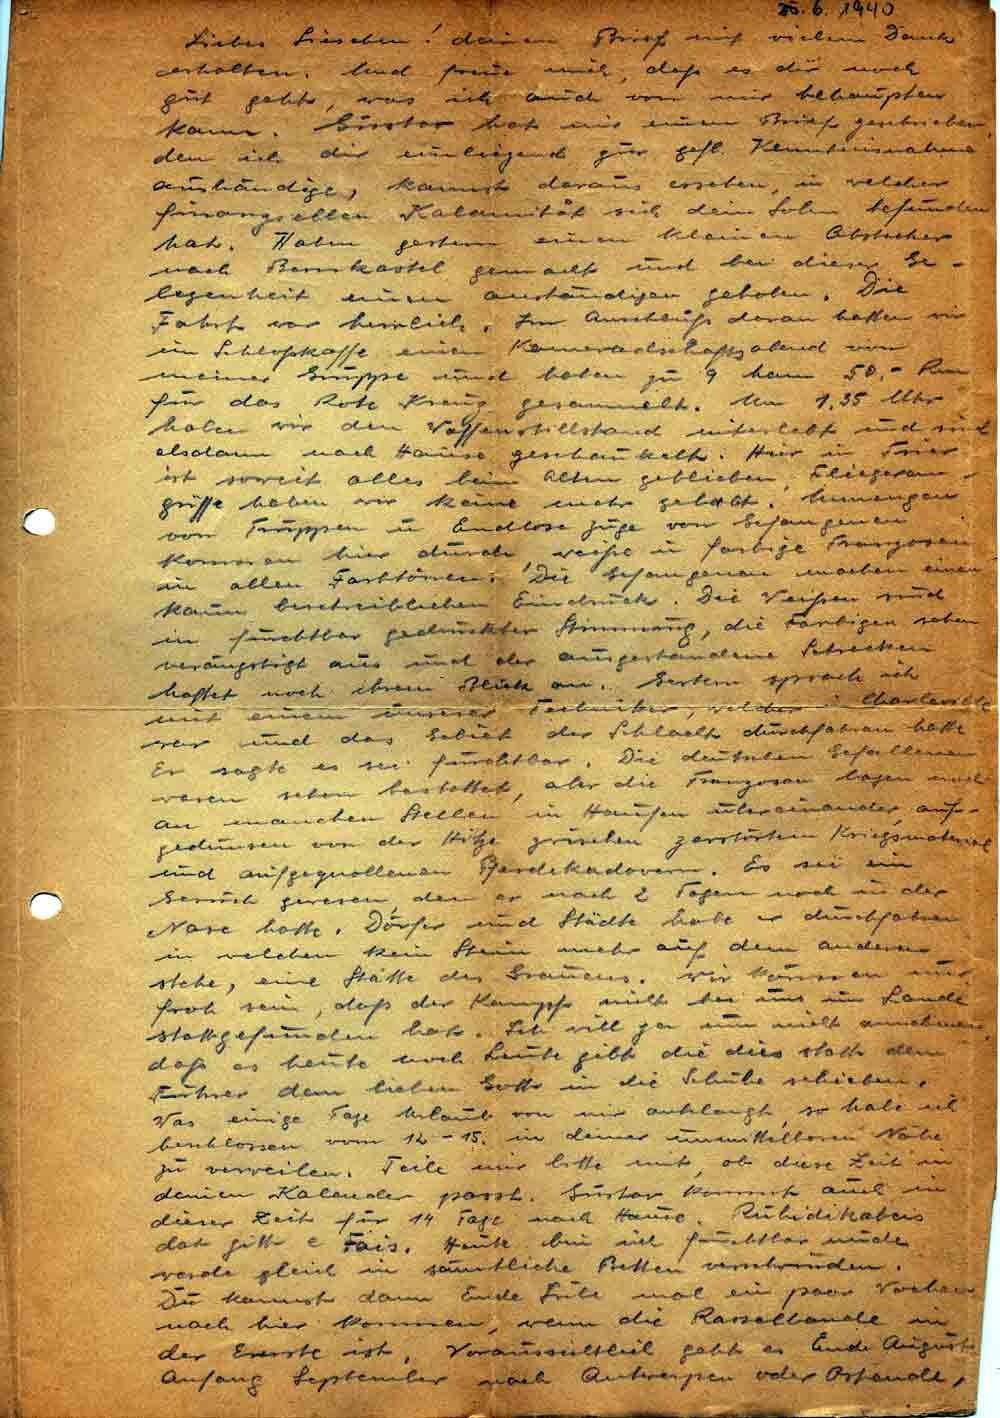 25.6.1940
Liebes Lieschen! deinen Brief mit vielem Dank
erhalten. Und freue mich, daß es dir noch
gut geht, was ich auch von mir behaupten
kann. Gustav hat mir einen Brief geschrieben,
den ich dir einliegend zur gefl. Kenntnisnahme
aushändige, kannst daraus ersehen, in welcher
finanziellen Kalamität sich dein Sohn befunden
hat. Haben gestern einen kleinen Abstecher
nach Bernkastel gemacht und bei dieser Ge-
legenheit einen anständigen gehoben. Die
Fahrt war herrlich. Im Anschluß daran hatten wir
im Schloßkaffe einen Kameradschaftsabend von
meiner Gruppe und haben zu 9 Mann 50.- RM
für das Rote Kreuz gesammelt. Um 1,35 Uhr
haben wir den Waffenstillstand miterlebt und sind
alsdann nach Hause geschaukelt. Hier in Trier
ist soweit alles beim Alten geblieben. Fliegeran-
griffe haben wir keine mehr gehabt. Unmengen
von Truppen u Endlose Züge von Gefangenen
kommen hier durch, weiße u farbige Franzosen
in allen Farbtönen. Die Gefangenen machen einen
kaum beschreiblichen Eindruck. Die Weißen sind
in furchtbar gedrückter Stimmung, die Farbigen sehen
verängstigt aus und der ausgestandene Schrecken
haftet noch ihrem Blick an. Gestern sprach ich
mit einem unserer Techniker, welcher in Charleville
war und das Gebiet der Schlacht durchfahren hatte
Er sagte es sei furchtbar. Die deutschen Gefallenen
waren schon bestattet, aber die Franzosen lagen noch
an manchen Stellen in Haufen übereinander, auf-
gedunsen von der Hitze zwischen zerstörtem Kriegsmaterial
und aufgequollenen Pferdekadavern. Es sei ein
Geruch gewesen, den er nach 2 Tagen noch in der
Nase hatte. Dörfer und Städte habe er durchfahren
in welchen kein Stein mehr auf dem andern
stehe, eine Stätte des Grauens. Wir können nur
froh sein, daß der Kampf nicht bei uns im Lande
stattgefunden hat. Ich will ja nun nicht annehmen
daß es heute noch Leute gibt die dies statt dem
Führer dem lieben Gott in die Schuhe schieben.
Was einige Tage Urlaub von mir anbelangt, so habe ich
beschlossen vom 12-15. in deiner unmittelbaren Nähe
zu verweilen. Teile mir bitte mit, ob diese Zeit in
deinen Kalender passt. Gustav kommt auch in
dieser Zeit für 14 Tage nach Hause.
dat gitt e Heute bin ich furchtbar müde
werde gleich in sämtliche Betten verschwinden.
Du kannst dann Ende Juli mal ein paar Wochen
nach hier kommen, wenn die Rasselbande in
der Ernte ist. Voraussichtlich geht es Ende August
Anfang September nach Antwerpen oder Ostende,